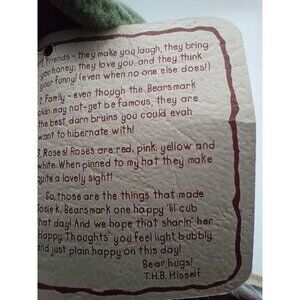 Friends - they make you laugh, they bring
you honey, they love you, and they think
your funny! (even when no one else does!)
Family - even though the Bearsmark
clan may not-yet be famous, they are
the best darn bruins you could evah
want to hibernate with!
? Roses! Roses are red, pink, yellow and
white. When pinned to my hat they make
quite a lovely sight!
So, those are the things that made
Josie K. Bearsmark one happy 'lil cub
that day! And we hope that sharin' her
"Happy Thoughts" you feel light, bubbly,
and just plain happy on this day!
Bear hugs!
T.H.B. Hisself